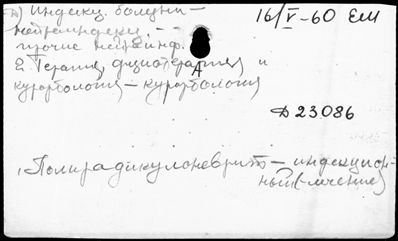 а) Инфекц. болезни – 16/V-60 ЕМ
нейроинфекц. –
прочие нейроинф.
2. Терапия, физиотерапия и
курортология – курортология
Д 23086
Полирадикулоневрит – инфекцион-
ный (– лечение)